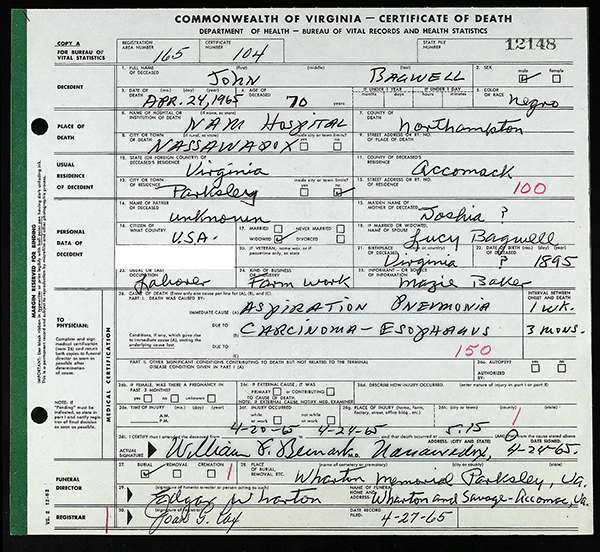 COMMONWEALTH OF VIRGINIA — CERTIFICATE OF DEATH
DEPARTMENT OF HEALTH — BUREAU OF VITAL RECORDS AND HEALTH STATISTICS
COPY A
FOR BUREAU OF VITAL STATISTICS
REGISTRATION AREA NUMBER 165 CERTIFICATE NUMBER 104 STATE FILE NUMBER 12148
DECEDENT
1. FULL NAME OF DECEASED (first) (middle) (last) 2. SEX
JOHN BAGWELL male female
3. DATE OF DEATH (mo.) (day) (year) 4. AGE OF DECEASED IF UNDER 1 YEAR IF UNDER 1 DAY 5. COLOR OR RACE
APR. 24, 1965 70 years months days hours minutes negro
PLACE OF DEATH
6. NAME OF HOSPITAL OR INSTITUTION OF DEATH 7. COUNTY OF DEATH
NAM HOSPITAL Northampton
8. CITY OR TOWN OF DEATH inside city or town limits? 9. STREET ADDRESS OR RT. NO. OF PLACE OF DEATH
NASSAWADOX
USUAL RESIDENCE OF DECEDENT
10. STATE (OR FOREIGN COUNTRY) OF DECEASED'S RESIDENCE 11. COUNTY OF DECEASED'S RESIDENCE
Virginia Accomack
12. CITY OR TOWN OF RESIDENCE inside city or town limits? 13. STREET ADDRESS OR RT. NO. OF RESIDENCE
Parksley 100
PERSONAL DATA OF DECEDENT
14. NAME OF FATHER OF DECEASED 15. MAIDEN NAME OF MOTHER OF DECEASED
unknown Joshia ?
16. CITIZEN OF WHAT COUNTRY 17. MARRIED NEVER MARRIED WIDOWED DIVORCED 18. IF MARRIED OR WIDOWED, NAME OF SPOUSE
U.S.A. Lucy Bagwell
20. IF VETERAN, name war, or if peacetime only, so state 21. BIRTHPLACE OF DECEASED 22. DATE OF BIRTH (mo.) (day) (year)
Virginia ? 1895
23. USUAL OR LAST OCCUPATION 24. KIND OF BUSINESS OR INDUSTRY 25. INFORMANT - OR SOURCE OF INFORMATION
Laborer Farm work Mazie Baker
MARGIN RESERVED FOR BINDING
TO PHYSICIAN:
Complete and sign medical certification (item 26) and return both copies to funeral director as soon as possible after determination of cause.
MEDICAL CERTIFICATION
26. CAUSE OF DEATH (Enter only one cause per line for (A), (B), and (C).) INTERVAL BETWEEN ONSET AND DEATH
PART I. DEATH WAS CAUSED BY:
IMMEDIATE CAUSE (A) ASPIRATION PNEUMONIA 1 WK.
Conditions, if any, which gave rise to immediate cause (A), stating the underlying cause last. DUE TO CARCINOMA - ESOPHAGUS 3 MONS.
DUE TO 150
PART II. OTHER SIGNIFICANT CONDITIONS CONTRIBUTING TO DEATH BUT NOT RELATED TO THE TERMINAL DISEASE CONDITION GIVEN IN PART I (A)
26a. AUTOPSY? yes no
AUTHORIZED BY:
NOTE: If "Pending" must be indicated as cause of death, notify registrar of final decision as soon as possible.
26b. IF FEMALE, WAS THERE A PREGNANCY IN PAST 3 MONTHS? yes no unknown
26c. IF EXTERNAL CAUSE, IT WAS PRIMARY or CONTRIBUTING TO CAUSE OF DEATH
NOTE: IF EXTERNAL CAUSE NOTIFY MED. EXAMINER
26d. DESCRIBE HOW INJURY OCCURRED. (enter nature of injury in part I or part II)
26e. TIME OF INJURY (mo.) (day) (year) A.M. P.M. 26f. INJURY OCCURRED while at work not while at work 26g. PLACE OF INJURY (home, farm, factory, street, office bldg., etc.) 26h. (city or town) (county) (state)
4-20-65 4-24-65 5:15
26i. I CERTIFY that I attended the deceased from and that death occurred at from the cause stated above
ACTUAL SIGNATURE M.D. ADDRESS: (CITY AND STATE) DATE SIGNED:
4-24-65.
FUNERAL DIRECTOR
27. BURIAL REMOVAL CREMATION 28. PLACE OF BURIAL, REMOVAL, ETC. (name of cemetery or crematory) (city or county) (state)
1 Wharton Memorial Parksley, Va.
29. (signature of funeral director or person acting as such) NAME OF FUNERAL HOME AND ADDRESS
Edgar Wharton Wharton and Savage - Accomac, Va.
REGISTRAR
30. SIGNATURE DATE RECORD FILED:
Joan G. Cox 4-27-65
VS. 2 12-62